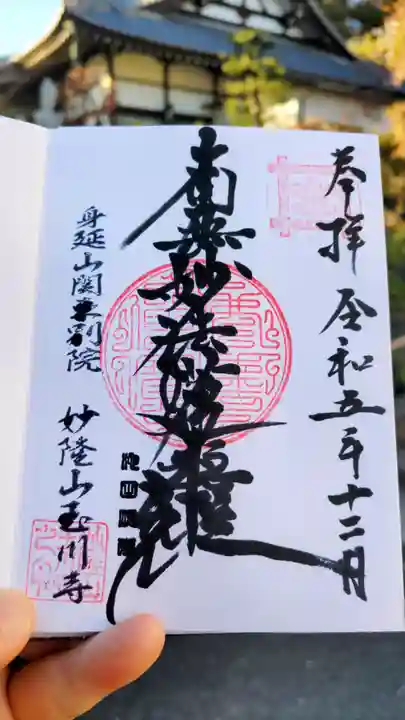 奉拝 令和五年十二月
南無妙法蓮華経
身延山関東別院 妙隆山玉川寺